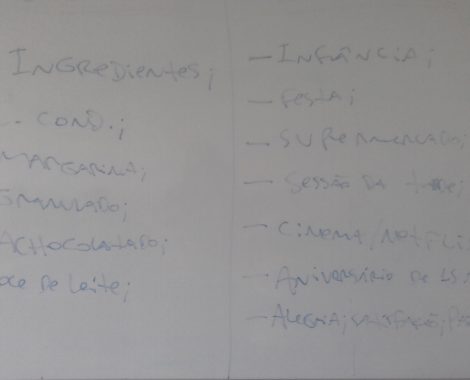 INGREDIENTES;
L. COND.;
MARGARINA;
GRANULADO;
ACHOCOLATADO;
OCE DE LEITE;
— INFÂNCIA;
— FESTA;
— SUPERMERCADO;
— SESSÃO DA
— CINEMA/NETFLI
— ANIVERSÁRIO DE
— ALEGRIA; SATISFAÇÃO;